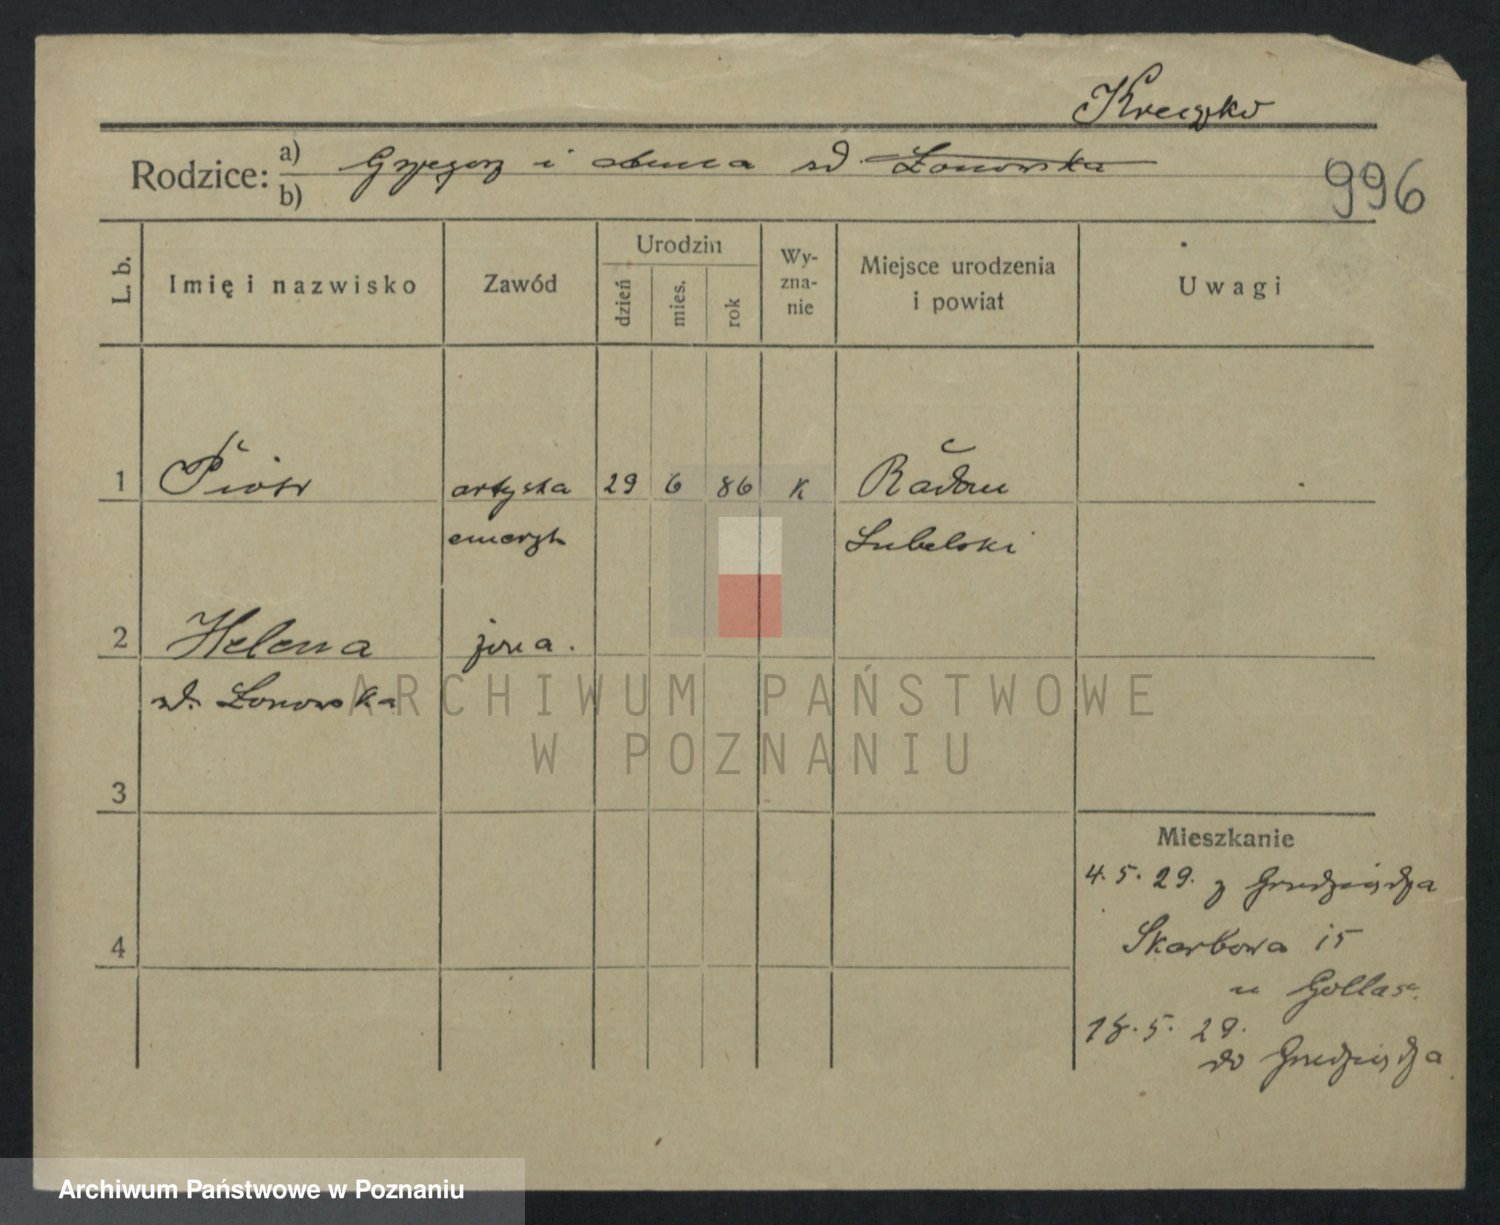 Rodzice: a) Grzegorz i Anna zd. Łonowska
b)
996
L. b.
Imię i nazwisko
Zawód
Urodzin
dzień
mies.
rok
Wy-
zna-
nie
Miejsce urodzenia
i powiat
Uwagi
1 Piotr artysta 29 6 86 K Radom
emeryt Lubelski
2 Helena żona.
zd. Łonowska
ARCHIWUM PAŃSTWOWE
W POZNANIU
3
Mieszkanie
4. 5. 29. z Grudziądza
4
Skarbowa 15
u
18. 5. 29.
do Grudziądza
Archiwum Państwowe w Poznaniu